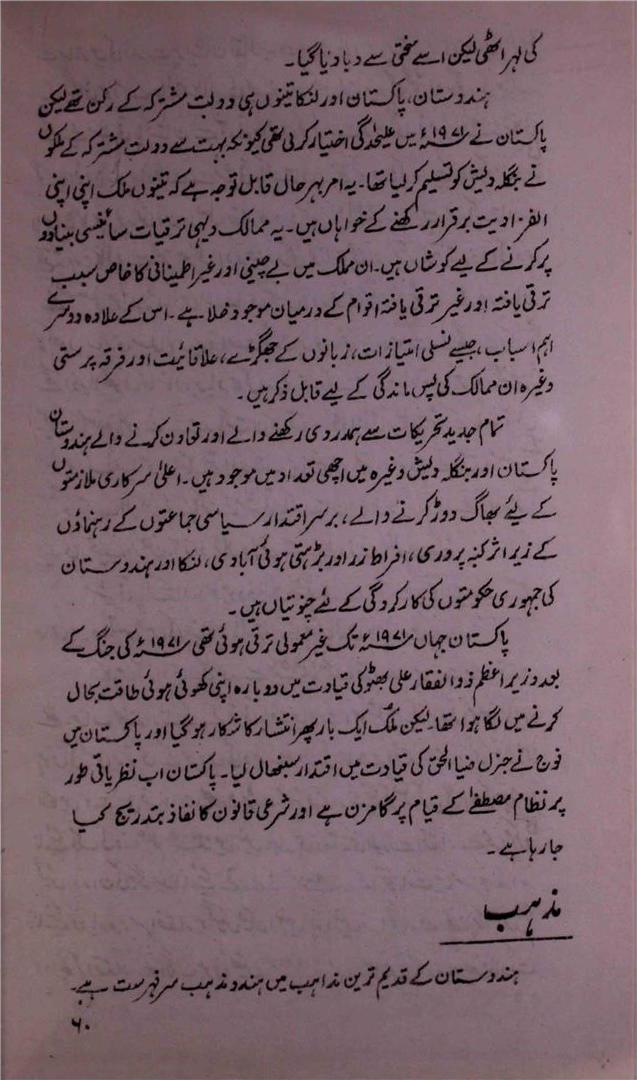 کی لہر اٹھی لیکن اسے سختی سے دبا دیا گیا۔
ہندوستان، پاکستان اور لنکا تینوں ہی دولت مشترکہ کے رکن تھے لیکن
پاکستان نے ۱۹۷۱ء میں علیحدگی اختیار کرلی تھی کیونکہ بہت سے دولت مشترکہ کے ملکوں
نے بنگلہ دیش کو تسلیم کرلیا تھا۔ یہ امر بہر حال قابل توجہ ہے کہ تینوں ملک اپنی اپنی
انفرادیت برقرار رکھنے کے خواہاں ہیں۔ یہ ممالک دیہی ترقیات سائینسی بنیادوں
پر کرنے کے لیے کوشاں ہیں۔ ان مملک میں بے چینی اور غیر اطمینانی کا خاص سبب
ترقی یافتہ اور غیر ترقی یافتہ اقوام کے درمیان موجود خلا ہے۔ اس کے علاوہ دوسرے
اہم اسباب، جیسے نسلی امتیازات، زبانوں کے جھگڑے، علاقائیت اور فرقہ پرستی
وغیرہ ان ممالک کی پس ماندگی کے لیے قابل ذکر ہیں۔
تمام جدید تحریکات سے ہمدردی رکھنے والے اور تعاون کرنے والے ہندوستان
پاکستان اور بنگلہ دیش وغیرہ میں اچھی تعداد میں موجود ہیں۔ اعلیٰ سرکاری ملازمتوں
کے لیئے بھاگ دوڑ کرنے والے، برسراقتدار سیاسی جماعتوں کے رہنماؤں
کے زیر اثر کنبہ پروری، افراط زر اور بڑھتی ہوئی آبادی، لنکا اور ہندوستان
کی جمہوری حکومتوں کی کارکردگی کے لئے چنوتیاں ہیں۔
پاکستان جہاں ۱۹۷۱ء تک غیر معمولی ترقی ہوئی تھی ۱۹۷۱ء کی جنگ کے
بعد وزیر اعظم ذوالفقار علی بھٹو کی قیادت میں دوبارہ اپنی کھوئی ہوئی طاقت بحال
کرنے میں لگا ہوا تھا۔ لیکن ملک ایک بار پھر انتشار کا شکار ہو گیا اور پاکستان میں
فوج نے جنرل ضیا الحق کی قیادت میں اقتدار سنبھال لیا۔ پاکستان اب نظریاتی طور
پر نظام مصطفےٰ کے قیام پر گامزن ہے اور شرعی قانون کا نفاذ بتدریج کیا
جا رہا ہے۔
مذہب
ہندوستان کے قدیم ترین مذاہب میں ہندو مذہب سر فہرست ہے۔
۶۰